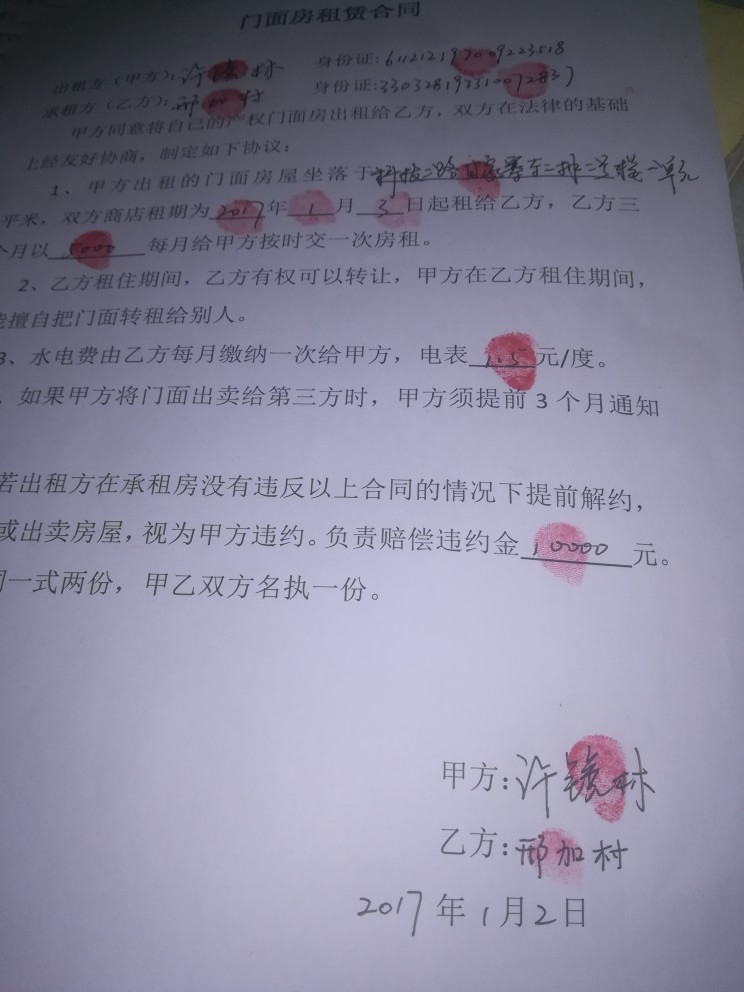 门面房租赁合同
出租方（甲方）：许镜林 身份证：
承租方（乙方）：邢加村 身份证：
甲方同意将自己的产权门面房出租给乙方，双方在法律的基础
上经友好协商，制定如下协议：
1、甲方出租的门面房屋坐落于科技二路
平米，双方商店租期为2017年1月3日起租给乙方，乙方三
个月以5000每月给甲方按时交一次房租。
2、乙方租住期间，乙方有权可以转让，甲方在乙方租住期间，
能擅自把门面转租给别人。
3、水电费由乙方每月缴纳一次给甲方，电表1.5元/度。
如果甲方将门面出卖给第三方时，甲方须提前3个月通知
若出租方在承租房没有违反以上合同的情况下提前解约，
或出卖房屋，视为甲方违约。负责赔偿违约金10000元。
同一式两份，甲乙双方名执一份。
甲方：许镜林
乙方：邢加村
2017年1月2日